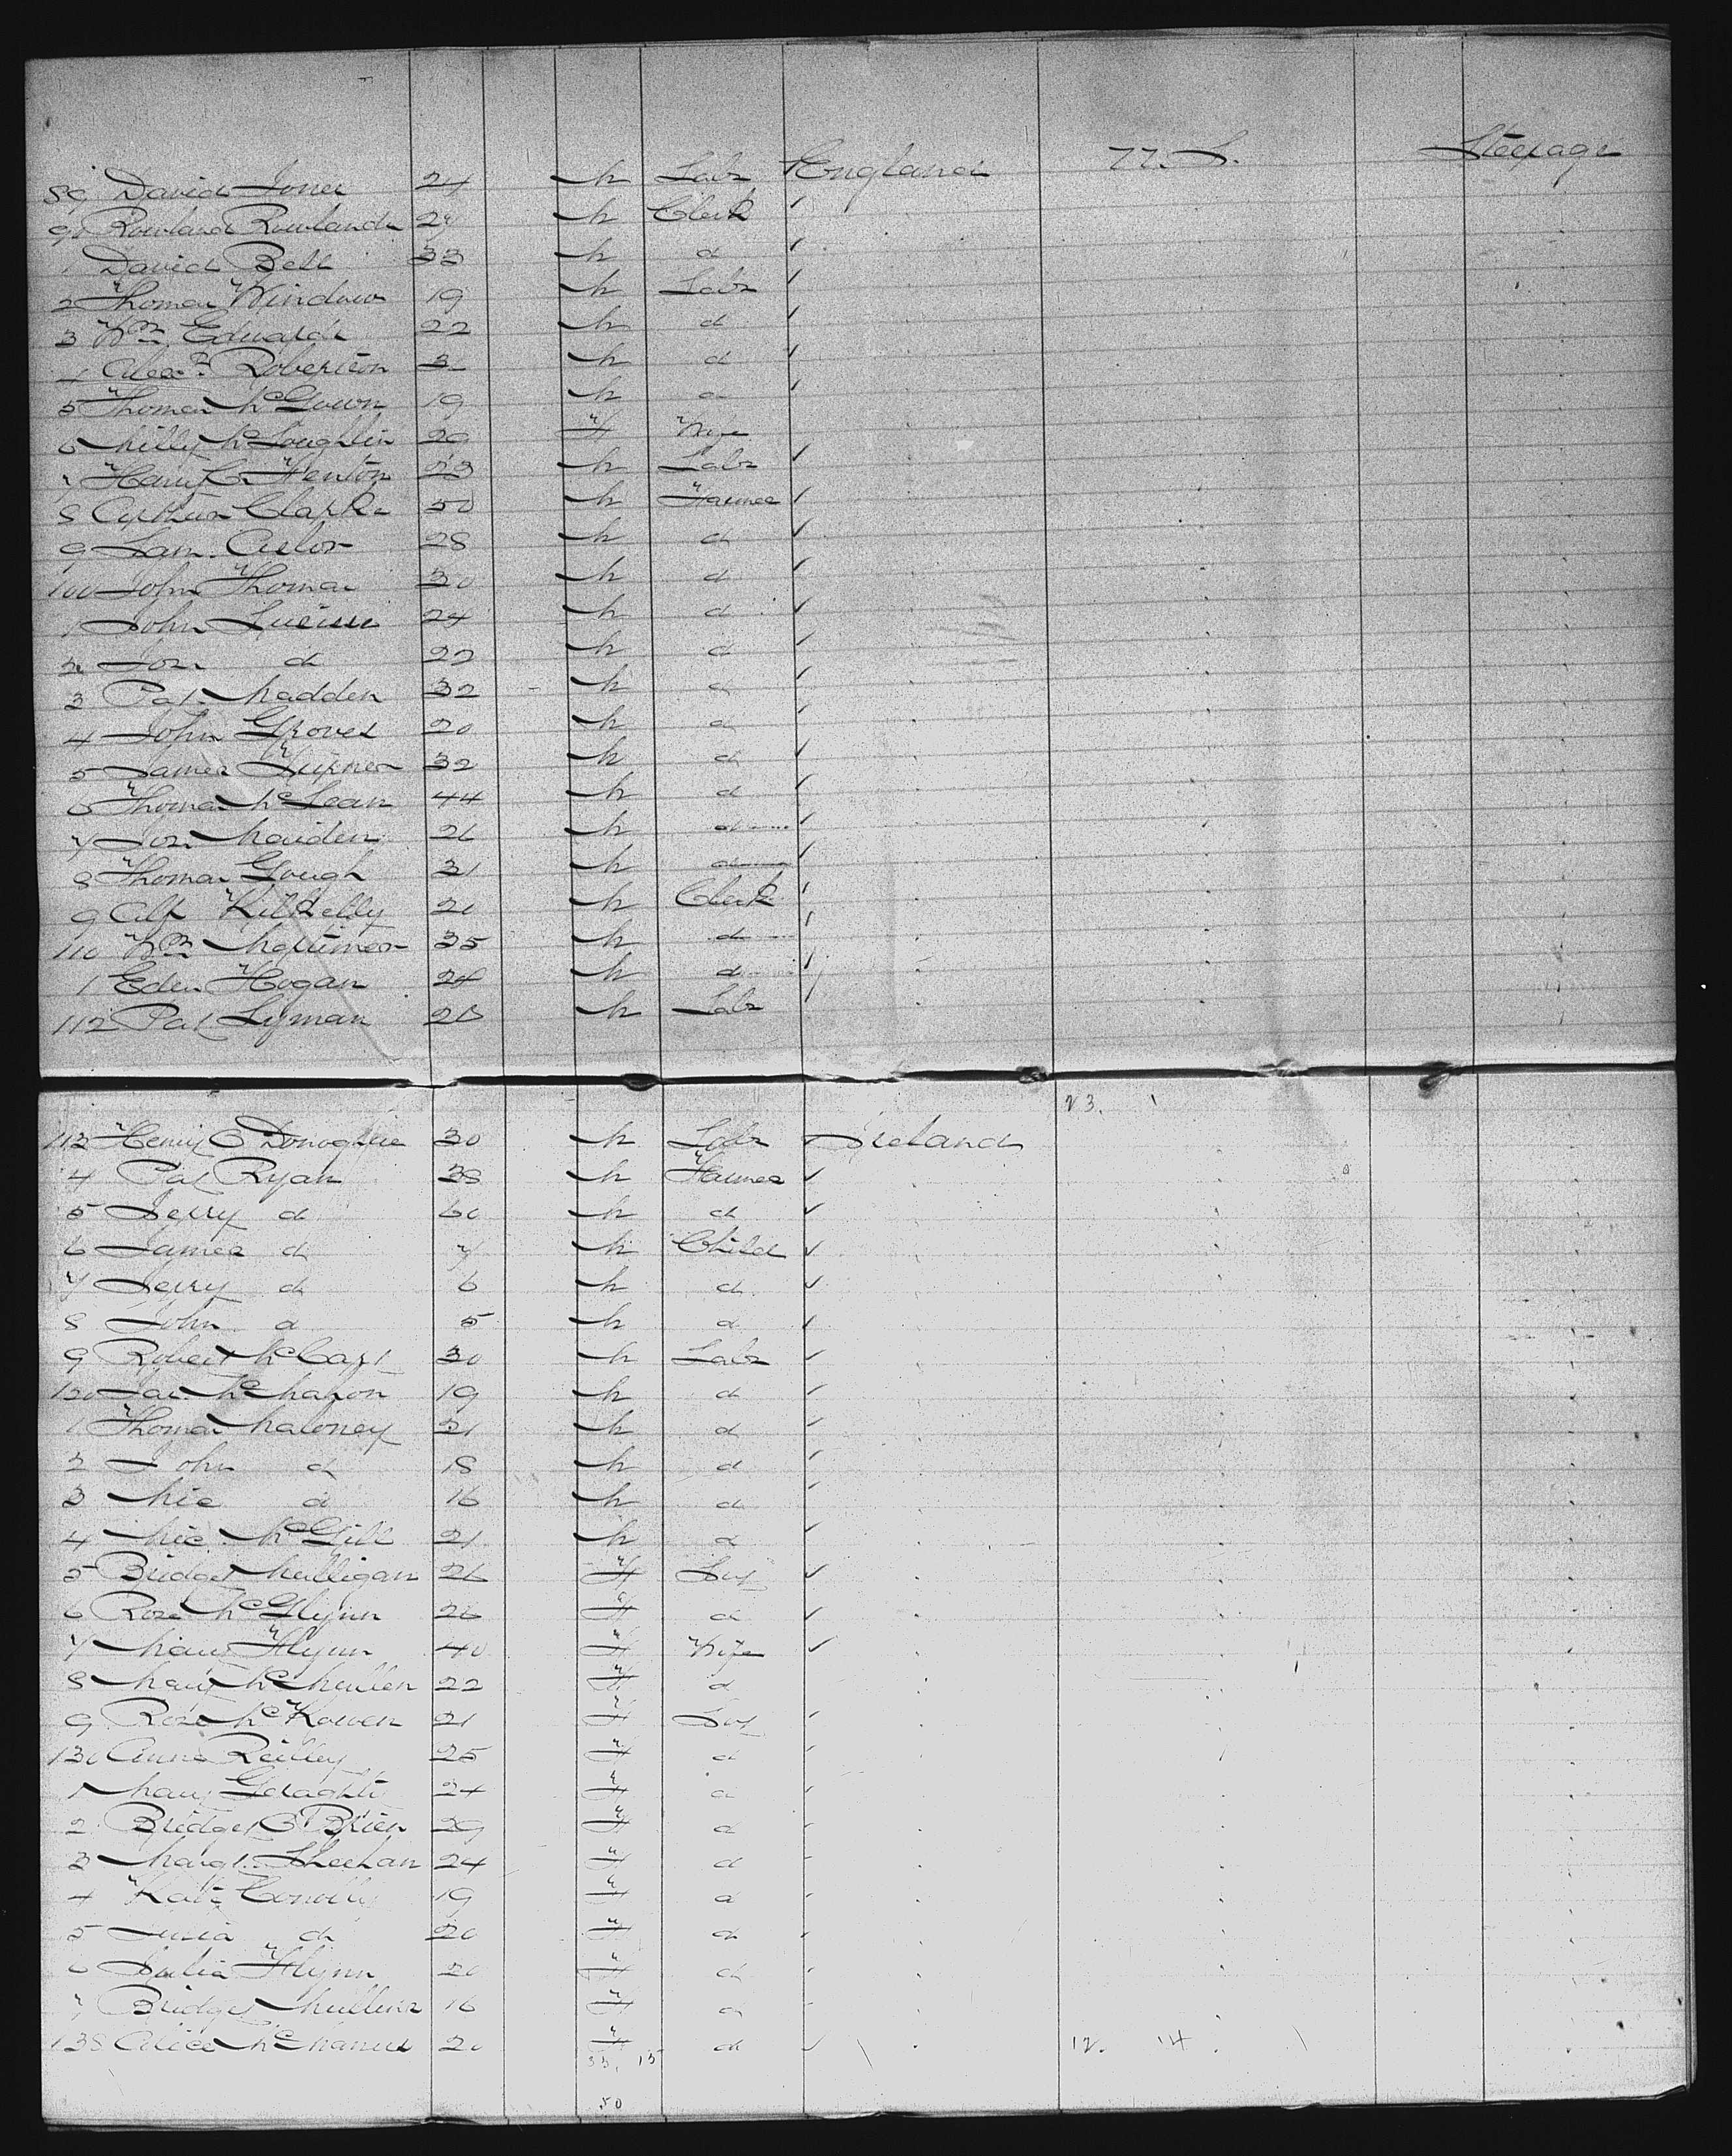 89 David Jones 24 M Labr England U. S. Steerage
90 Rowland Rowlands 24 M Clerk
1 David Bell 33 M d
2 Thomas Windows 19 M Labr
3 Wm Edwards 22 M d
4 Alexr Robertson M d
5 Thomas McGown 19 M d
6 Milly McLoughlin 29 F Wife
7 Henry C. Henton M Labr
8 Arthur Clarke 50 M Farmer
9 Sam. 28 M d
100 John Thomas 30 M d
1 John 24 M d
2 Jos. d 22 M d
3 Pat. Madden 32 M d
4 John Groves 20 M d
5 James Turner 32 M d
6 Thomas McLean 44 M d
7 Jos. Maiden 26 M d
8 Thomas Gough 31 M d
9 Alf Kilkelly M Clerk
110 Wm Mortimer 35 M d
1 Eden Hogan M d
112 Pat Lyman M Labr
23.
113 Henry O'Donoghue 30 M Labr Ireland
4 Pat Ryan 38 M Farmer
5 Jerry d 60 M d
6 James d 7 M Child
7 Jerry d 6 M d
8 John d 5 M d
9 Robert McCart 30 M Labr
120 Jas. McMahon 19 M d
1 Thomas Maloney 21 M d
2 John d 18 M d
3 Mic d 16 M d
4 Mic. McGill 21 M d
5 Bridget Mulligan 26 F Svt
6 Rose McGlynn 26 F d
7 Mary Flynn 40 F Wife
8 Mary McMullen 22 F d
9 Rose McKowen 21 F Svt
130 Anne Reilley 25 F d
1 Mary Geraghty 24 F d
2 Bridget O'Brien 29 F d
3 Margt. Sheehan 24 F d
4 Kate Conolly 19 F d
5 Julia d 20 F d
6 Julia Flynn 20 F d
7 Bridget Mullins 16 F d
138 Alice McManus 20 F d 12. 14
33. 15
50